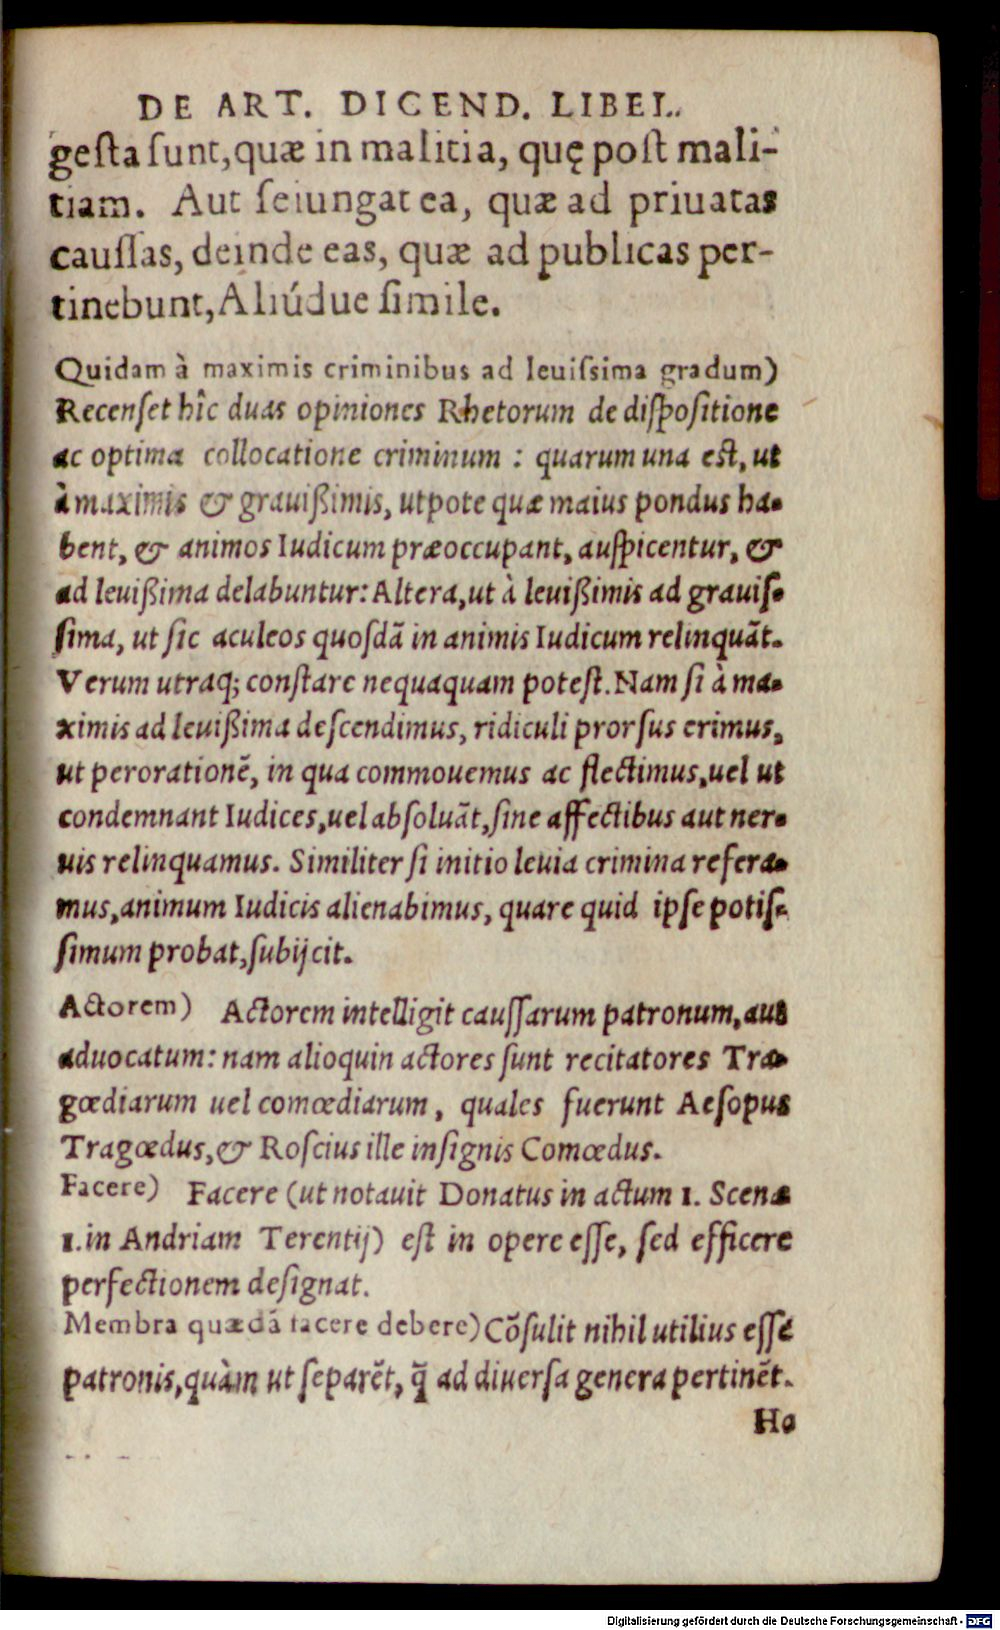 DE ART. DICEND. LIBEL.
gesta sunt, quæ in malitia, quę post mali-
tiam. Aut seiungat ea, quæ ad priuatas
caussas, deinde eas, quæ ad publicas per-
tinebunt, Aliúdue simile.
Quidam à maximis criminibus ad leuissima gradum)
Recenset hîc duas opiniones Rhetorum de dispositione
ac optima collocatione criminum : quarum una est, ut
à maximis & grauißimis, utpote quæ maius pondus ha-
bent, & animos Iudicum præoccupant, auspicentur, &
ad leuißima delabuntur: Altera, ut à leuißimis ad grauis-
sima, ut sic aculeos quosdā in animis Iudicum relinquāt.
Verum utraq; constare nequaquam potest. Nam si à ma-
ximis ad leuißima descendimus, ridiculi prorsus erimus,
ut perorationē, in qua commouemus ac flectimus, uel ut
condemnant Iudices, uel absoluāt, sine affectibus aut ner-
uis relinquamus. Similiter si initio leuia crimina refera-
mus, animum Iudicis alienabimus, quare quid ipse potis-
simum probat, subijcit.
Actorem) Actorem intelligit caussarum patronum, aut
aduocatum: nam alioquin actores sunt recitatores Tra-
gœdiarum uel comœdiarum, quales fuerunt Aesopus
Tragœdus, & Roscius ille insignis Comœdus.
Facere) Facere (ut notauit Donatus in actum 1. Scena
1. in Andriam Terentij) est in opere esse, sed efficere
perfectionem designat.
Membra quædā facere debere) Cōsulit nihil utilius esse
patronis, quàm ut separēt, q̄ ad diuersa genera pertinēt.
Ha
Digitalisierung gefördert durch die Deutsche Forschungsgemeinschaft - DFG